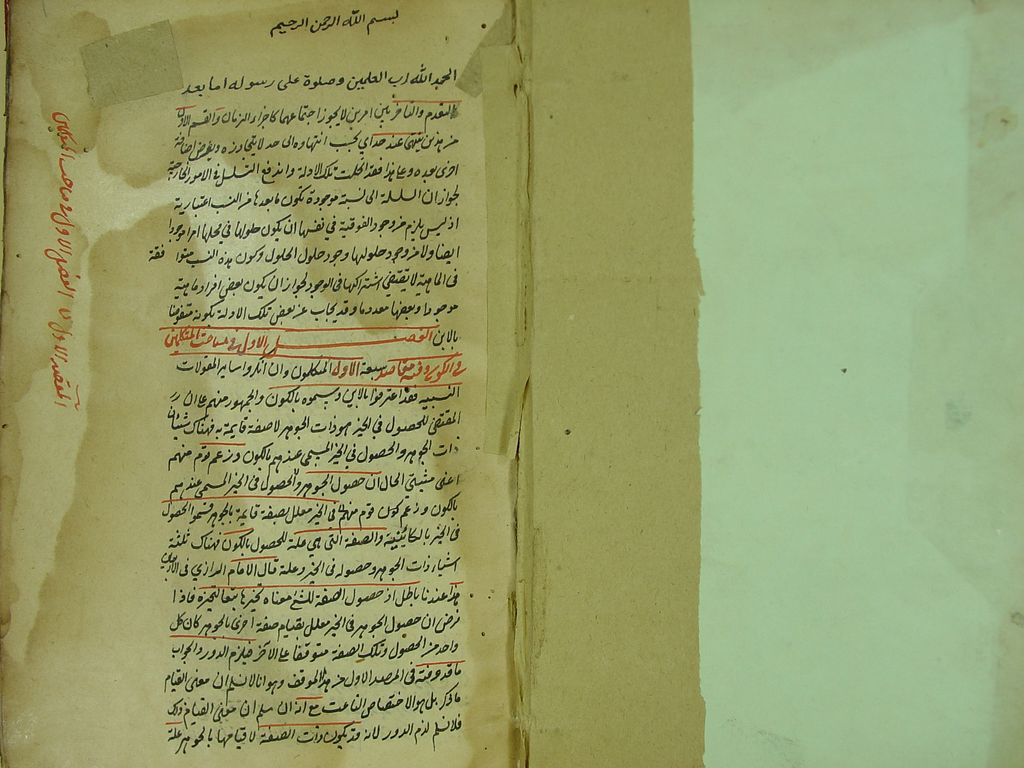 بسم الله الرحمن الرحيم
الحمد لله رب العلمين وصلوة على رسوله اما بعد
التقدم والتأخر بين امرين لا يجوز اجتماعهما كاجزاء الزمان والقسم الاول
عند حد اى يجب انتهاوه الى حد لا يتجاوزه ويفرض اضافة
اخرى بعده وعلى هذا فقد انحلت تلك الادلة واندفع التسلسل فى الامور الخارجية
لجواز ان السلسلة الى نسبة موجودة تكون ما بعدها من النسب اعتبارية
اذ ليس يلزم من وجود الفوقية في نفسها ان يكون حلولها في محلها امرا موجودا
ايضا ولا من وجود حلولها وجود حلول الحلول وكون هذه النسب متوافقة
فى الماهية لا تقتضى اشتراكها فى الوجود لجواز ان يكون بعض افراد ماهية
موجودا وبعضها معدوما وقد يجاب عن بعض تلك الادلة بكونه منقوضا
بالاين الفصل الاول في مباحث المتكلمين
فى الكون وفيه مقاصد سبعة الاول المتكلمون وان انكروا ساير المقولات
النسبية فقد اعترفوا بالاين وسموه بالكون والجمهور منهم على ان
المقتضى للحصول فى الحيز هو ذات الجوهر لا صفة قايمة به فهناك شيئان
ذات الجوهر والحصول فى الحيز المسمى عندهم بالكون وزعم قوم منهم
اعنى مثبتى الحال ان حصول الجوهر والحصول فى الحيز المسمى عندهم
بالكون وزعم قوم منهم فى الحيز معلل بصفة قايمة بالجوهر فسموا الحصول
فى الحيز بالكائنية والصفة التى هى علة للحصول بالكون فهناك ثلثة
اشياء ذات الجوهر وحصوله فى الحيز وعلته قال الامام الرازي فى الاربعين
هذا عندنا باطل اذ حصول الصفة للشئ معناه تحيزها تبعا لتحيزه فاذا
فرض ان حصول الجوهر فى الحيز معلل بقيام صفة اخرى بالجوهر كان كل
واحد من الحصول وتلك الصفة متوقفا على الاخر فيلزم الدور والجواب
ما قد عرفته فى المرصد الاول من هذا الموقف وهو انا لا نسلم ان معنى القيام
ما ذكر بل هو الاختصاص الناعت مع انه ان سلم ان معنى القيام ذلك
فلا نسلم لزوم الدور لانه قد يكون ذات الصفة لا قيامها بالجوهر علة
المقصد الاول من الفصل الاول في مباحث المتكلمين